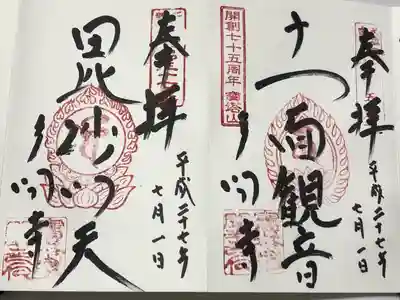 奉拝
平成二十七年
七月一日
十一面観音
開創七十五周年 寶塔山
奉拝
平成二十七年
七月一日
毘沙門天